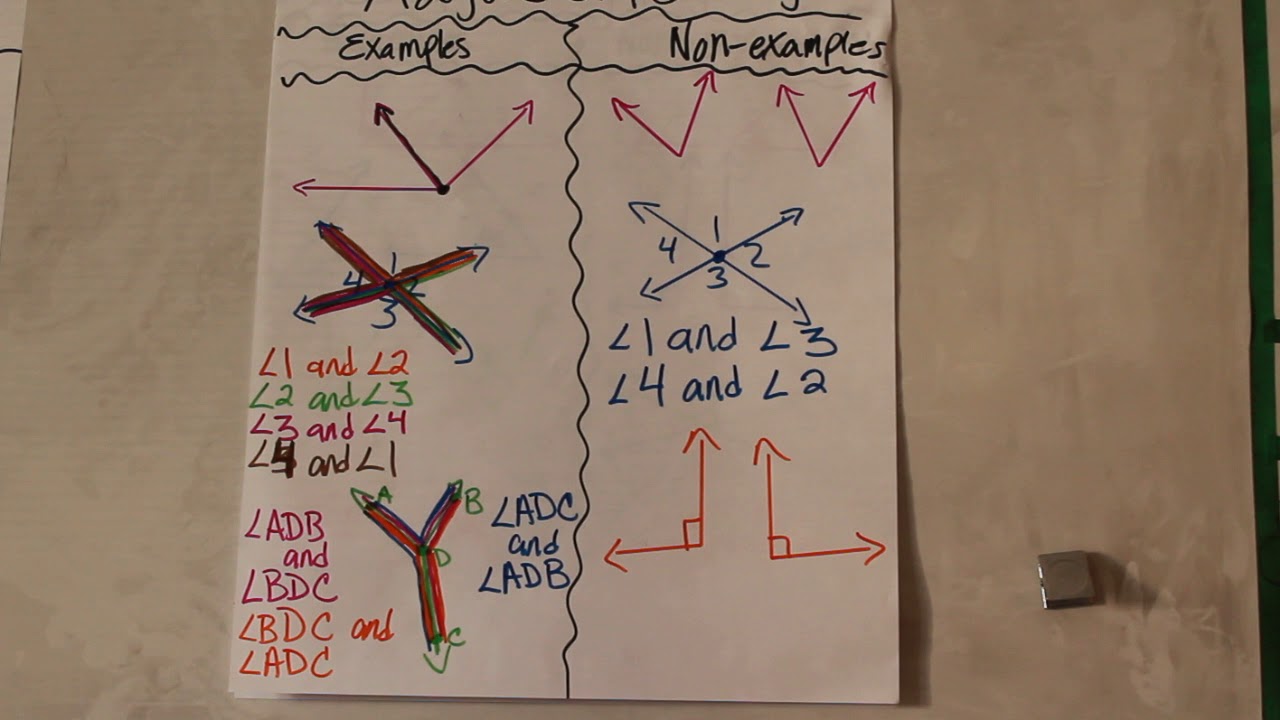 Examples
Non-examples
1
4 2
3
∠1 and ∠2
∠2 and ∠3
∠3 and ∠4
∠4 and ∠1
A
B
D
C
∠ADB
and
∠BDC
∠BDC and
∠ADC
∠ADC
and
∠ADB
1
4 2
3
∠1 and ∠3
∠4 and ∠2